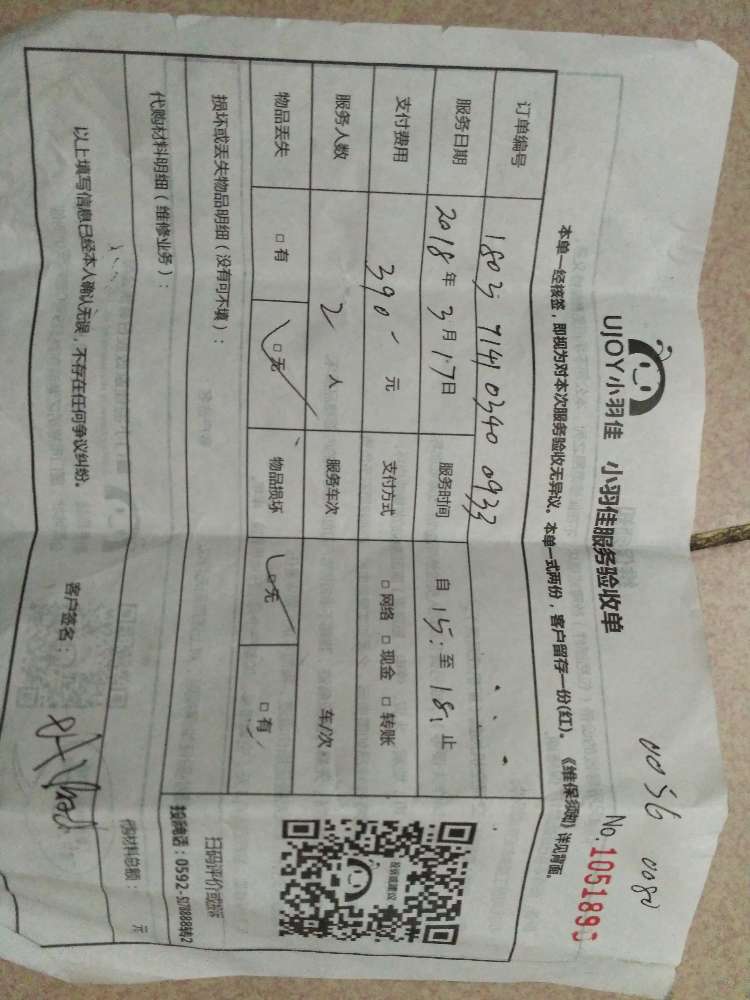 0056 0080
UJOY小羽佳 小羽佳服务验收单
No.
本单一经核签,即视为对本次服务验收无异议。本单一式两份,客户留存一份(红)。《维保须知》详见背面。
订单编号 1803 7141 0340 0933
服务日期 2018年3月17日 服务时间 自15:至18:止
支付费用 390元 支付方式 □网络 □现金 □转账
服务人数 2人 服务车次 车/次
物品丢失 □有 □无 物品损坏 □无 □有
损坏或丢失物品明细(没有可不填):
代购材料明细(维修业务):
代购材料总额: 元
以上填写信息已经本人确认无误,不存在任何争议纠纷。
客户签名:
投诉或建议
扫码评价或投诉
投诉电话:0592-